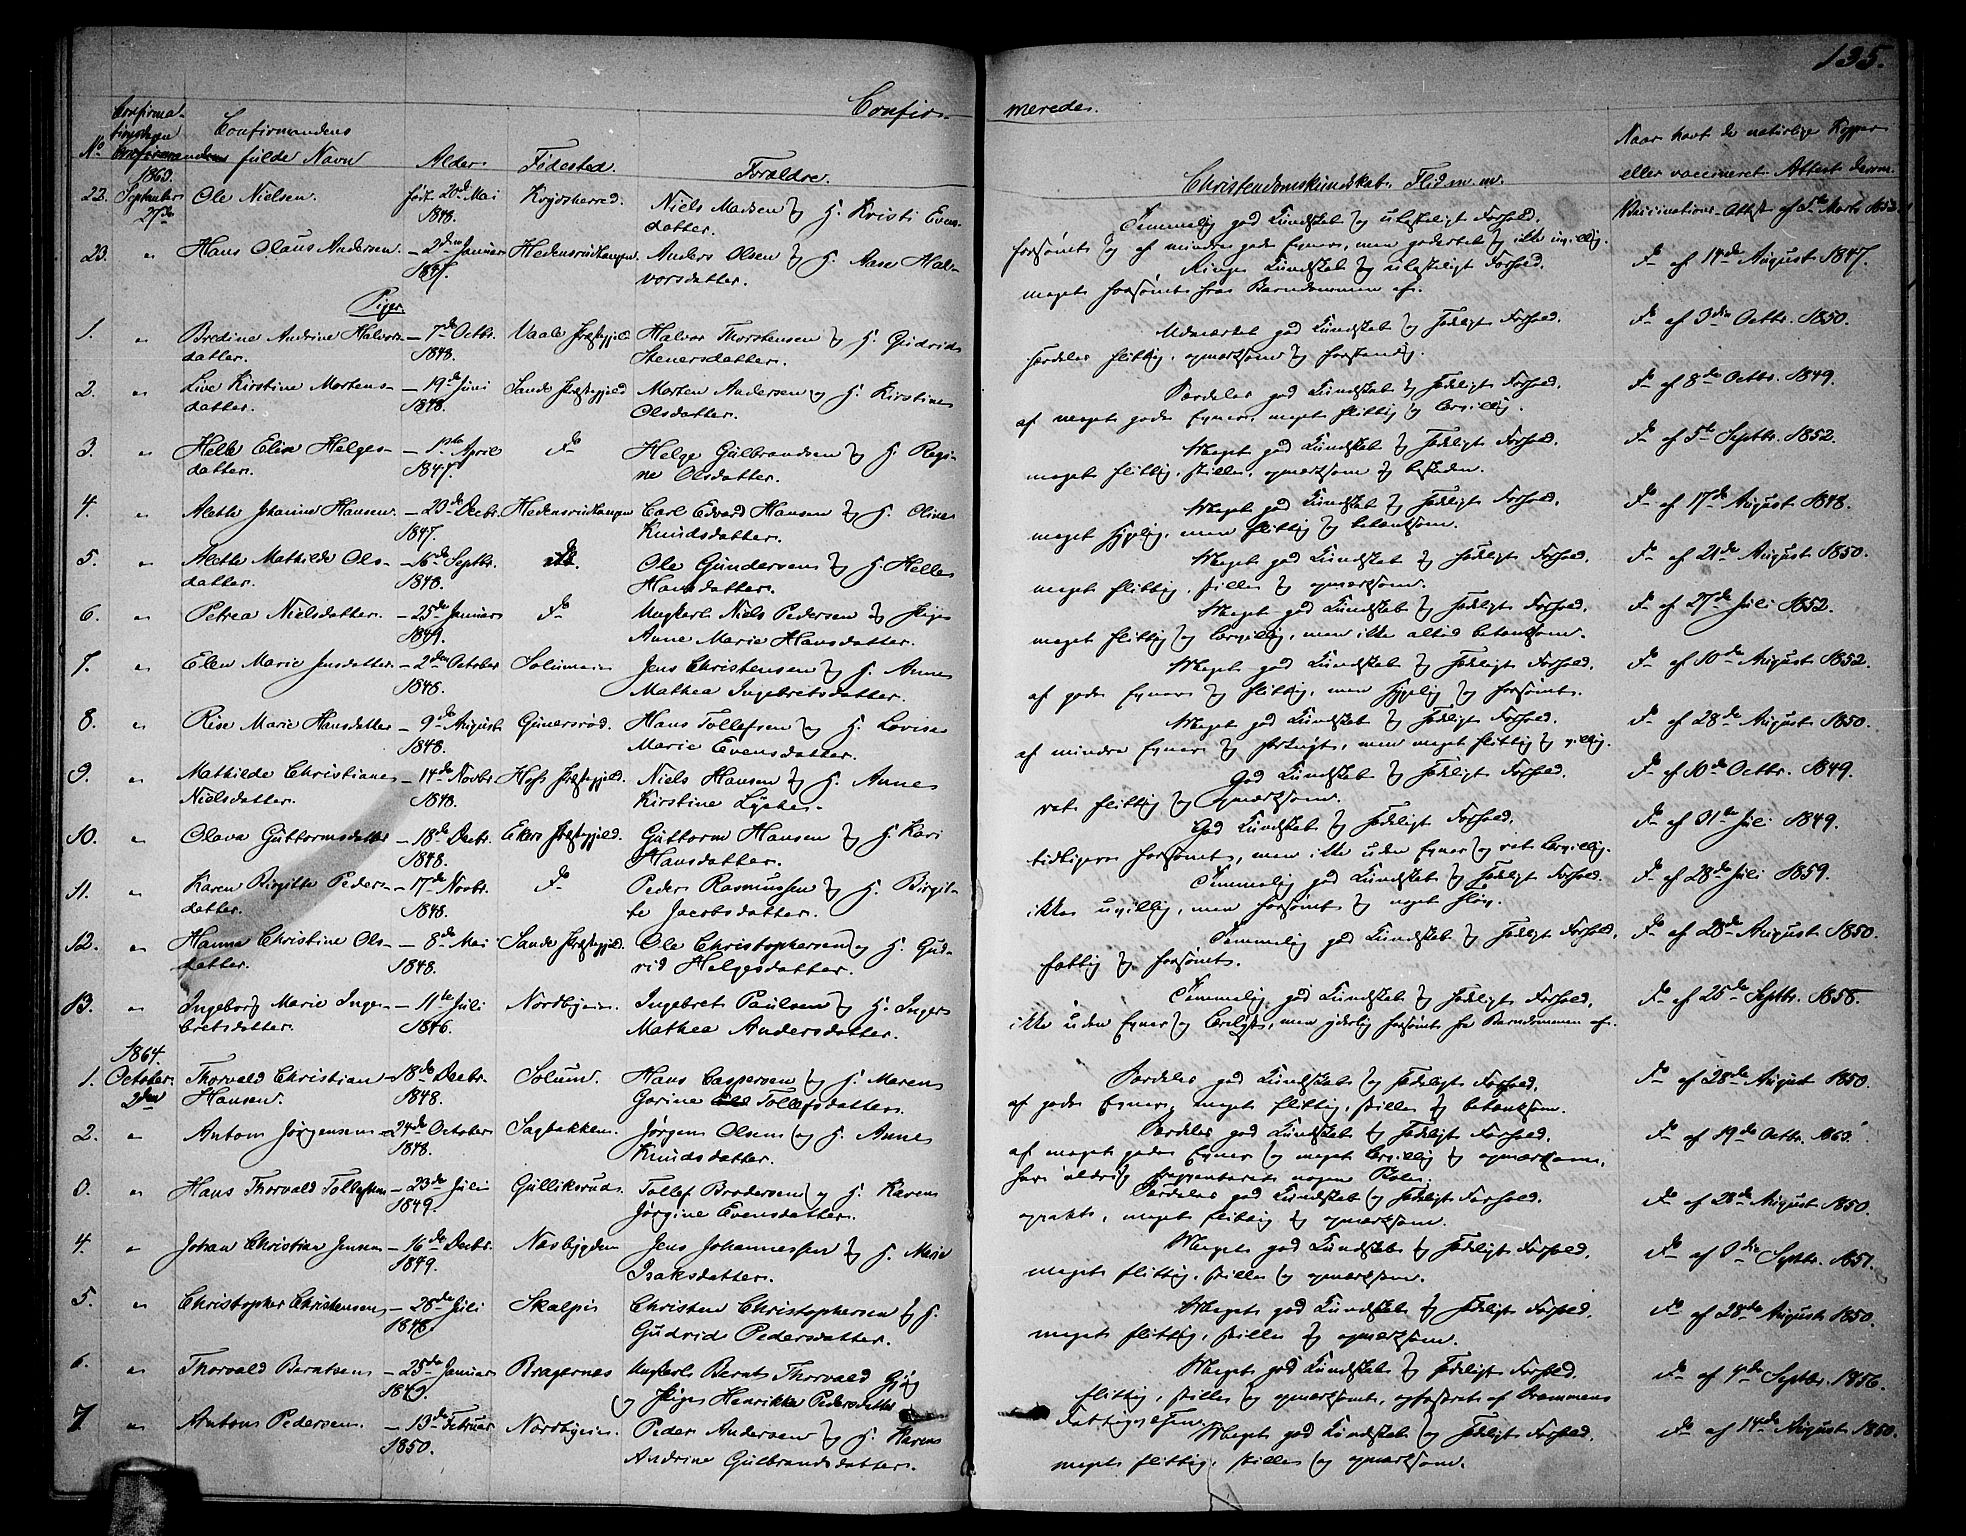 135.
Confir- meredes.
No. Confirma-
tionsdagen Confirmandens fulde Navn Alder. Fødested. Forældre. Christendomskundskab. Flid m. m. Naar havt de naturlige Kopper
eller vaccineret. Attest derom.
1863.
22. September 27de Ole Nielsen. født 20de Mai Krydsherred. Niels Madsen og H. Kristi Evens- Temmelig god Kundskab og ulasteligt Forhold. Vaccinations-Attest af 5te Marts
1848. datter. forsømt og af mindre gode Evner, men godartet og ikke uvillig.
23. " Hans Olaus Andersen. - 2den Januar Hedensrudtangen. Anders Olsen og H. Aase Hal- Ringe Kundskab og ulasteligt Forhold. Do af 14de August 1847.
1847. vorsdatter. meget forsømt fra Barndommen af.
Piger
1. " Bredine Andrine Halvors- - 7de Octbr. Vaale Præstegjeld Halvor Thorstensen og H. Gudrid Udmærket god Kundskab og sædeligt Forhold. Do af 3die Octbr. 1850.
datter. 1848. særdeles flittig, opmærksom og forstandig.
2. " Live Kirstine Mortens- - 19de Juni Sande Præstegjeld Morten Andersen og H. Kirstine Særdeles god Kundskab og sædeligt Forhold. Do af 8de Octbr. 1849.
datter. 1848. Olsdatter. af meget gode Evner, meget flittig og lærvillig.
3. " Helle Elise Helges- - 1ste April Do Helge Gulbrandsen og H. Regi- Meget god Kundskab og sædeligt Forhold. Do af 5te Septbr. 1852.
datter. 1847. ne Olsdatter. meget flittig, stille, opmærksom og beskeden.
4. " Alethe Johanne Hansen. - 20de Decbr. Hedensrudtangen Carl Edvard Hansen og H. Oline Meget god Kundskab og sædeligt Forhold. Do af 17de August 1848.
1847. Knudsdatter. meget hyppig, men flittig og betænksom.
5. " Alethe Mathilde Ols- - 16de Septbr. Do. Ole Gundersen og H. Helle Meget god Kundskab og sædeligt Forhold. Do af 21de August 1850.
datter. 1848. Hansdatter. meget flittig, stille og opmærksom.
6. " Petrea Nielsdatter. - 25de Januar Do Ungkarl Niels Pedersen og Pige Meget god Kundskab og sædeligt Forhold. Do af 27de Juli 1852.
1849. Anne Marie Hansdatter. meget flittig og lærvillig, men ikke altid betænksom.
7. " Elen Marie Jensdatter. - 2den October Solumeie Jens Christensen og H. Anne Meget god Kundskab og sædeligt Forhold. Do af 10de August 1852.
1848. Mathea Ingebretsdatter. af gode Evner og flittig, men hyppig og forsømt.
8. " Rise Marie Hansdatter - 9de August Gunersrød. Hans Tollefsen og H. Lovise Meget god Kundskab og sædeligt Forhold. Do af 28de August 1850.
1848. Marie Evensdatter. af mindre Evner, men meget flittig og villig.
9. " Mathilde Christiane - 14de Novbr. Hofs Præstegjeld. Niels Hansen og H. Anne God Kundskab og sædeligt Forhold. Do af 10de Octbr. 1849.
Nielsdatter. 1848. Kirstine ret flittig og opmærksom.
10. " Olava Guttormsdatter - 18de Decbr. Ekers Præstegjeld. Guttorm Hansen og H. Kari God Kundskab og sædeligt Forhold. Do af 31te Juli 1849.
1848. Hansdatter. tidligere forsømt, men ikke uden Evner og ret lærvillig.
11. " Karen Birgitte Peders- - 17de Novbr. Do Peder Rasmussen og H. Birgit- Temmelig god Kundskab og sædeligt Forhold. Do af 28de Juli 1859.
datter. 1848. te Jacobsdatter. ikke uvillig, men forsømt og noget sløv.
12. " Hanna Christine Ols- - 8de Mai Sande Præstegjeld. Ole Christophersen og H. Gud- Temmelig god Kundskab og sædeligt Forhold. Do af 28de August 1850.
datter. 1848. rid Helgesdatter. fattig og forsømt.
13. " Ingeborg Marie Inge- - 11te Juli Nordbyeie. Ingebret Paulsen og H. Inger Temmelig god Kundskab og sædeligt Forhold. Do af 25de Septbr. 1858.
bretsdatter. 1846. Mathea Andersdatter. ikke uden Evner og men yderlig forsømt fra Barndommen af.
1864.
1. October 2den Thorvald Christian - 18de Decbr. Solum. Hans Caspersen og H. Maren Særdeles god Kundskab og sædeligt Forhold. Do af 28de August 1850.
Hansen. 1848. Gorine Tollefsdatter. af gode Evner, meget flittig, stille og betænksom.
2. " Anton Jørgensen - 24de October Sagbakken. Jørgen Olsen og H. Anne Særdeles god Kundskab og sædeligt Forhold. Do af 19de Octbr. 1863.
1848. Knudsdatter. af meget gode Evner og meget lærvillig og opmærksom,
har aldrig frequenteret nogen Skole.
3. " Hans Thorvald Tollefsen - 23de Juli Gulliksrud. Tollef Brodersen og H. Karen Særdeles god Kundskab og sædeligt Forhold. Do af 28de August 1850.
1849. Jørgine Evensdatter. meget flittig og opmærksom.
4. " Johan Christian Jensen - 16de Decbr. Næsbygden Jens Johannessen og H. Marie Meget god Kundskab og sædeligt Forhold. Do af 3die Septbr. 1851.
1849. Isaksdatter. meget flittig, stille og opmærksom.
5. " Christopher Christensen - 28de Juli Skalpie Christen Christophersen og H. Meget god Kundskab og sædeligt Forhold. Do af 28de August 1850.
1848. Gudrid Pedersdatter. meget flittig, stille og opmærksom.
6. " Thorvald Berntsen - 25de Januar Bragernes Ungkarl Bernt Thorvald Meget god Kundskab og sædeligt Forhold. Do af 4de Septbr. 1856.
1849. og Pige Henrikke Pedersdatter flittig, stille og opmærksom, opfostret af Drammens
Fattigvæsen.
7 " Anton Pedersen. - 13de Februar Nordbyeie. Peder Andersen og H. Karen Meget god Kundskab og sædeligt Forhold. Do af 14de August 1850.
1850. Andrine Gulbrandsdatter. meget flittig, stille og opmærksom.